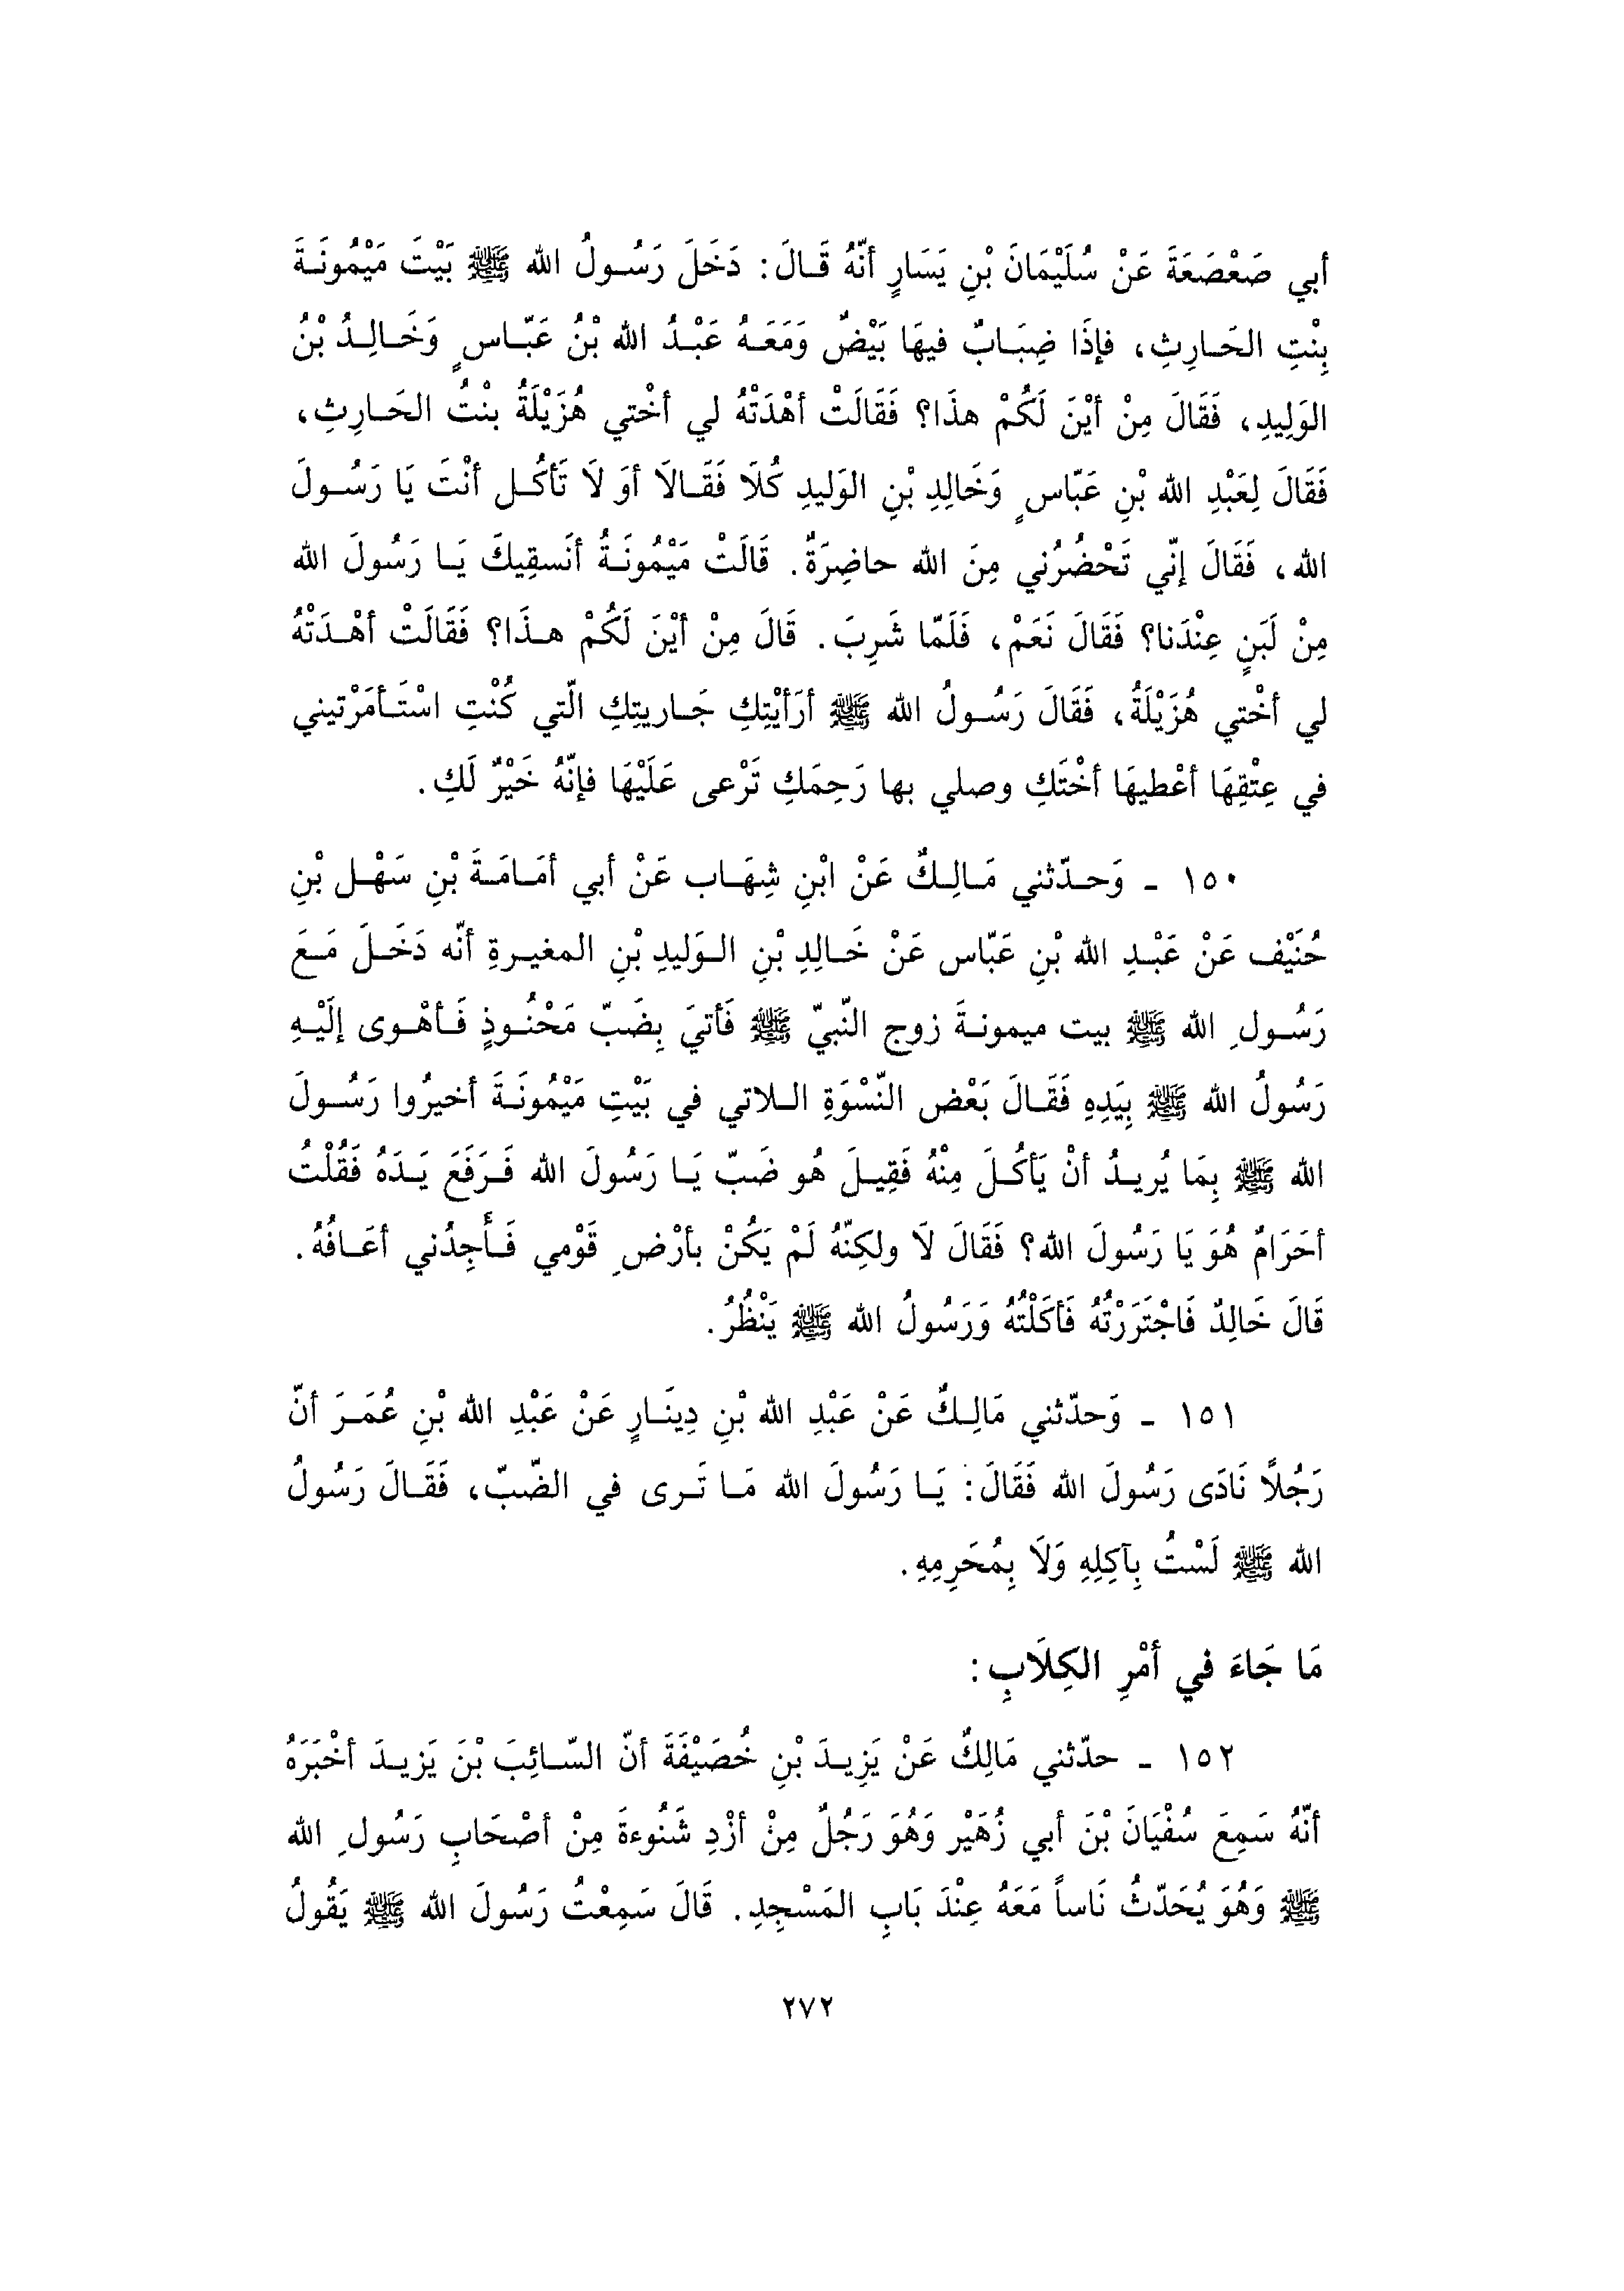 أبي صَعْصَعَةَ عَنْ سُلَيْمَانَ بْنِ يَسَارٍ أنّهُ قَالَ: دَخَلَ رَسُولُ الله ﷺ بَيْتَ مَيْمُونَةَ
بِنْتِ الحَارِثِ، فإذَا ضِبَابٌ فيهَا بَيْضٌ وَمَعَهُ عَبْدُ الله بْنُ عَبّاسٍ وَخَالِدُ بْنُ
الوَلِيدِ، فَقَالَ مِنْ أيْنَ لَكُمْ هذَا؟ فَقَالَتْ أهْدَتْهُ لي أخْتي هُزَيْلَةُ بنْتُ الحَارِثِ،
فَقَالَ لِعَبْدِ الله بْنِ عَبّاسٍ وَخَالِدِ بْنِ الوَليدِ كُلَا فَقَالَا أوَ لَا تَأكُل أنْتَ يَا رَسُولَ
الله، فَقَالَ إنّي تَحْضُرُني مِنَ الله حاضِرَةٌ. قَالَتْ مَيْمُونَةُ أنَسقِيكَ يَا رَسُولَ الله
مِنْ لَبَنٍ عِنْدَنا؟ فَقَالَ نَعَمْ، فَلَمّا شَرِبَ. قَالَ مِنْ أيْنَ لَكُمْ هذَا؟ فَقَالَتْ أهْدَتْهُ
لي أخْتي هُزَيْلَةُ، فَقَالَ رَسُولُ الله ﷺ أرَأيْتِكِ جَاريتِكِ الّتي كُنْتِ اسْتَأمَرْتيني
في عِتْقِهَا أعْطيهَا أخْتَكِ وصلي بها رَحِمَكِ تَرْعى عَلَيْهَا فإنّهُ خَيْرٌ لَكِ.
١٥٠ ـ وَحدّثني مَالِكٌ عَنْ ابْنِ شِهَاب عَنْ أبي أمَامَةَ بْنِ سَهْل بْنِ
حُنَيْف عَنْ عَبْدِ الله بْنِ عَبّاس عَنْ خَالِدِ بْنِ الوَليدِ بْنِ المغيرةِ أنّه دَخَلَ مَعَ
رَسُولِ الله ﷺ بيت ميمونةَ زوج النّبيّ ﷺ فَأتيَ بِضَبّ مَحْنُوذٍ فَأهْوى إلَيْهِ
رَسُولُ الله ﷺ بِيَدِهِ فَقَالَ بَعْض النّسْوَةِ اللاتي في بَيْتِ مَيْمُونَةَ أخبرُوا رَسُولَ
الله ﷺ بِمَا يُريدُ أنْ يَأكُلَ مِنْهُ فَقِيلَ هُو ضَبّ يَا رَسُولَ الله فَرَفَعَ يَدَهُ فَقُلْتُ
أحَرَامٌ هُوَ يَا رَسُولَ الله؟ فَقَالَ لَا ولكِنّهُ لَمْ يَكُنْ بأرْضِ قَوْمي فَأَجِدُني أعَافُهُ.
قَالَ خَالِدٌ فَاجْتَرَرْتُهُ فَأكَلْتُهُ وَرَسُولُ الله ﷺ يَنْظُرُ.
١٥١ ـ وَحدّثني مَالِكٌ عَنْ عَبْدِ الله بْنِ دِينَارٍ عَنْ عَبْدِ الله بْنِ عُمَرَ أنّ
رَجُلاً نَادَى رَسُولَ الله فَقَالَ: يَا رَسُولَ الله مَا تَرى في الضّبّ، فَقَالَ رَسُولُ
الله ﷺ لَسْتُ بِآكِلِهِ وَلَا بِمُحَرِمِهِ.
مَا جَاءَ في أمْرِ الكِلَابِ:
١٥٢ ـ حدّثني مَالِكٌ عَنْ يَزِيدَ بْنِ خُصَيْفَةَ أنّ السّائِبَ بْنَ يَزيدَ أخْبَرَهُ
أنّهُ سَمِعَ سُفْيَانَ بْنَ أبي زُهَيْر وَهُوَ رَجُلٌ مِنْ أزْدِ شَنُوءةَ مِنْ أصْحَابِ رَسُولِ الله
ﷺ وَهُوَ يُحَدّثُ نَاساً مَعَهُ عِنْدَ بَابِ المَسْجِدِ. قَالَ سَمِعْتُ رَسُولَ الله ﷺ يَقُولُ
٢٧٢